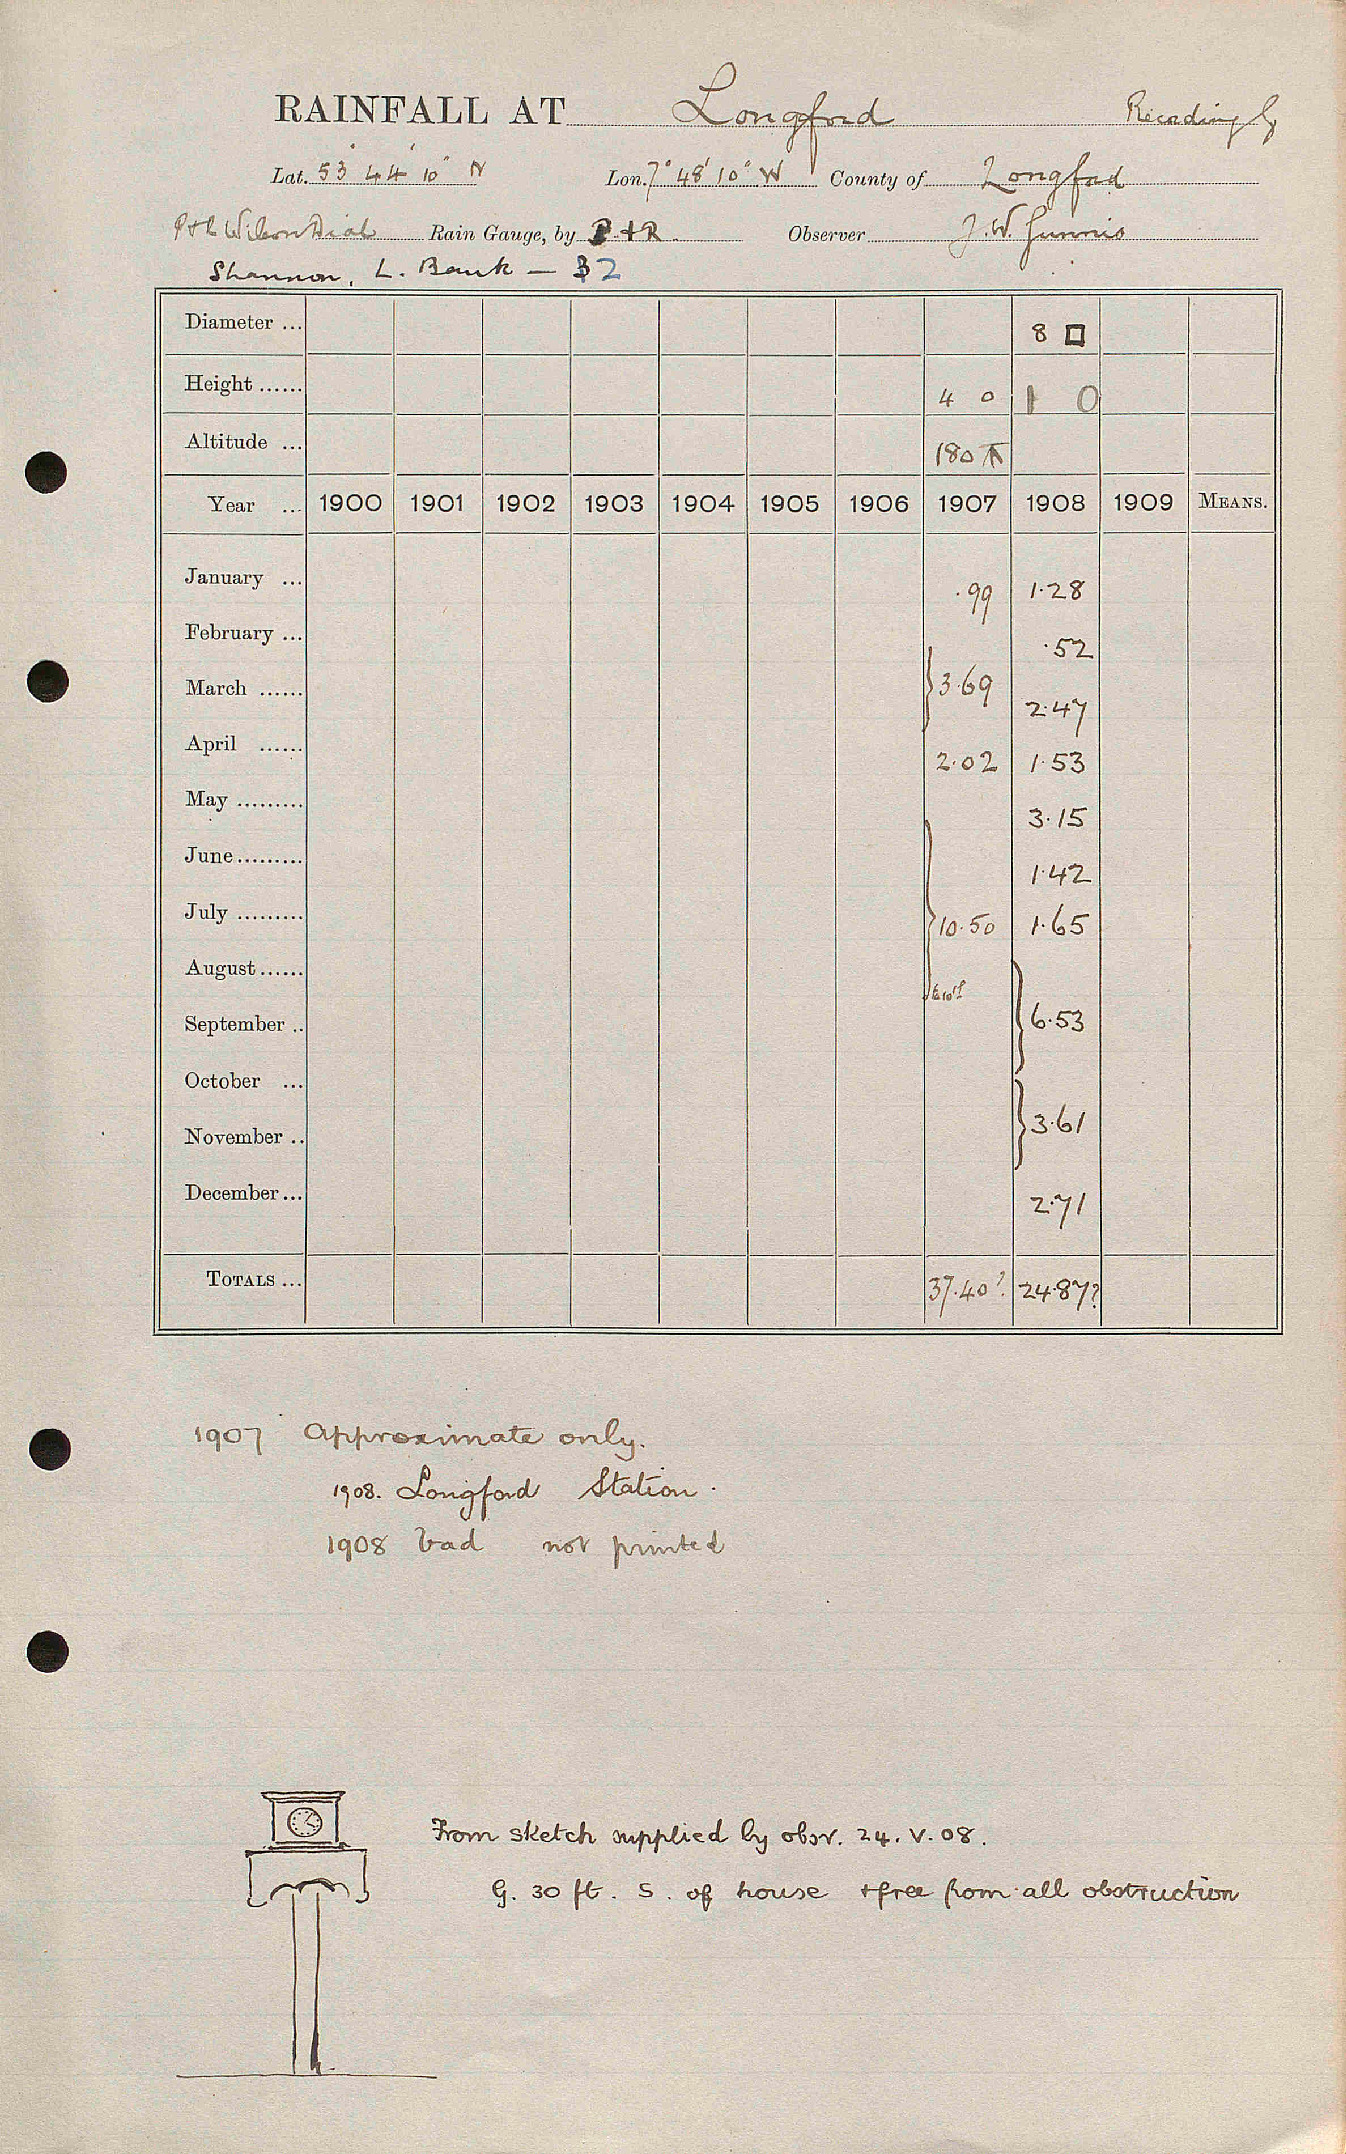 RAINFALL AT Longford Recording G
Lat. 53° 44' 10" N Lon. 7° 48' 10" W County of Longford
Dial Rain Gauge, by P+R. Observer J. W.
Shannon, L. Bank — 32
Diameter ... 8 □
Height ...... 4 0 1 0
Altitude ... 180
Year ... 1900 1901 1902 1903 1904 1905 1906 1907 1908 1909 MEANS.
January ... .99 1.28
February ... .52
March ...... } 3.69 2.47
April ...... 2.02 1.53
May ......... 3.15
June......... 1.42
July ......... } 10.50 1.65
August ......
September .. } 6.53
October ...
November .. } 3.61
December... 2.71
TOTALS ... 37.40? 24.87?
1907 Approximate only.
1908. Longford Station.
1908 bad not printed
From sketch supplied by obsr. 24. V. 08.
G. 30 ft. S. of house + free from all obstruction